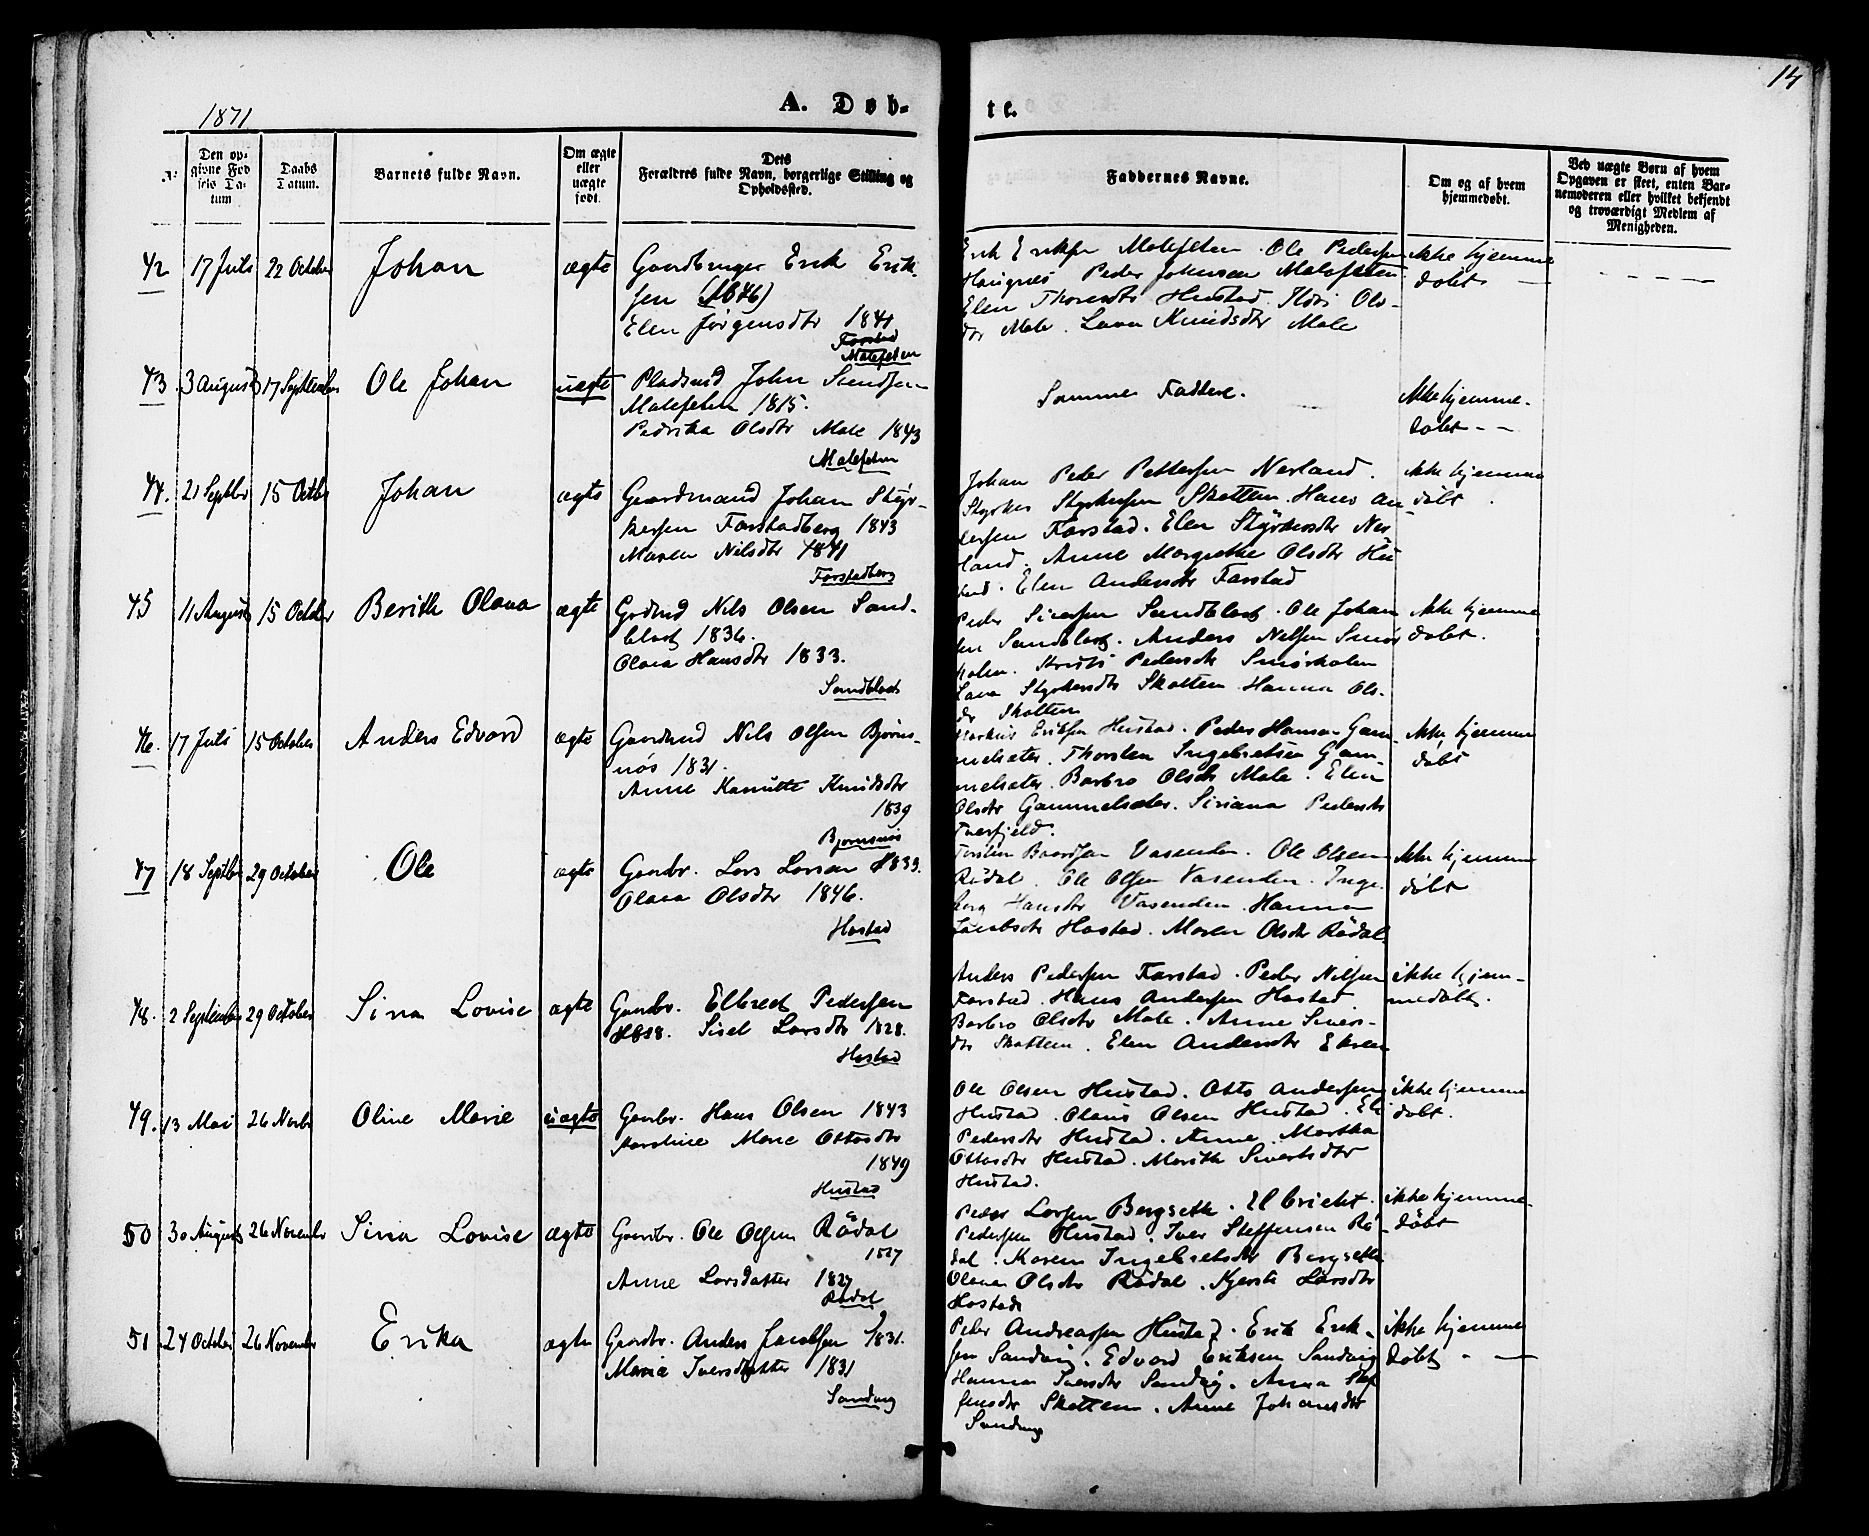 14
1871
A. Døb-
te.
№
Den op-
givne Fød
sels Da-
tum
Daabs
Datum.
Barnets fulde Navn.
Om ægte
eller
uægte
født.
Dets
Forældres fulde Navn, borgerlige Stilling og
Opholdssted.
Faddernes Navne.
Om og af hvem
hjemmedøbt.
Ved uægte Børn af hvem
Opgaven er skeet, enten Bar-
nemoderen eller hvilket bekjendt
og troværdigt Medlem af
Menigheden.
42 17 Juli 22 October Johan ægte
Gaardbruger Erik Erik-
sen (1846)
Elen Jørgensdtr 1841
Farstad
Malefeten
Erik Eriksen Malefeten. Ole Pedersen
Haugnes Peder Johnsen Malefeten
Elen Hustad. Ols-
dtr Male. Lava Knudsdtr Male
ikke hjemme
døbt
43 3 August 17 September Ole Johan uægte
Pladsmd John Sundsen
Malefeten 1815.
Pedrika Olsdtr Male 1843
Malefeten
Samme Faddere.
ikke hjemme-
døbt - -
44. 21 Septbr 15 Octbr Johan ægte
Gaardmand Johan Styr-
kersen Farstadberg 1843
Maren Nilsdtr 1841
Farstadberg
Johan Peder Pettersen Nerland.
Styrker Styrkersen Skotten. Hans An-
dersen Farstad. Elen Styrkersdtr Ner
land. Anne Margrethe Olsdtr Hu
stad. Elen Andersdtr Farstad
ikke hjemme
døbt.
45 11 August 15 October Berith Olava ægte
Grdmd Nils Olsen Sand-
blast 1836.
Olava Hansdtr 1833.
Sandblast
Peder Sandblast. Ole Johan
sen Sandblast. Anders Nilsen Smør
holm. Pedersdtr Smørholm
Lava Styrkersdtr Skotten Hanna Ols-
dtr Skotten
ikke hjemme
døbt.
46. 17 Juli 15 October Anders Edvard ægte
Gaardmd Nils Olsen Bjørns-
nøs 1831.
Anne Knudsdtr
1839
Bjørnsnøs
Markus Eriksen Hustad. Peder Hansen Gam-
melsæter. Thorsten Ingebretsen Gam-
melsæter. Barbro Olsdtr Male. Elen
Olsdtr Gammelsæter. Siriana Pedersdtr
Tverfjeld.
ikke hjemme
døbt
47 18 Septbr 29 October Ole ægte
Gaardbr. Lars Larsen 1833.
Olava Olsdtr 1846.
Hostad
Torsten Baardsen Vasenden. Ole Olsen
Rødal. Ole Olsen Vasenden. Inge-
borg Hansdtr Vasenden. Hanna
Jacobsdtr Hostad. Maren Olsdtr Rødal
ikke hjemme
døbt
48. 2 September 29 October Sina Lovise ægte
Gaardbr. Elbret Pedersen
1818. Sisel Larsdtr 1828.
Hostad
Anders Pedersen Farstad. Peder Nilsen
Farstad. Hans Andersen Hostad
Barbro Olsdtr Male. Anne Sivers-
dtr Skottem. Elen Andersdtr Ekren
ikke hjem-
medøbt.
49. 13 Mai 26 Novbr Oline Marie uægte
Gaardbr. Hans Olsen 1843
Karoline Marie Ottosdtr
1849
Hustad
Ole Olsen Hustad. Otto Andersen
Hustad. Olaus Olsen Hustad. Eli
Pedersdtr Hustad. Anne Martha
Ottosdtr Hustad. Marith Sivertsdtr
Hustad.
ikke hjemme
døbt.
50 30 August 26 November Sina Lovise ægte
Gaardbr. Ole Olsen Rødal
1827
Anne Larsdatter 1827
Rødal
Peder Larsen Bergseth. Elbricht
Pedersen Hustad. Iver Steffensen Rø-
dal. Karen Ingebretsdtr Bergseth
Olava Olsdtr Rødal. Kjersti Larsdtr
Hostad
ikke hjemme
døbt
51 24 October 26 November Erika ægte
Gaardbr. Anders Jacobsen 1831.
Maria Iversdatter 1831
Sandvig
Peder Andreassen Hustad. Erik Erik-
sen Sandvig. Edvard Eriksen Sandvig
Hanna Iversdtr Sandvig. Anna Stef
fensdtr Skottem. Anne Johansdtr
Sandvig
ikke hjemme
døbt